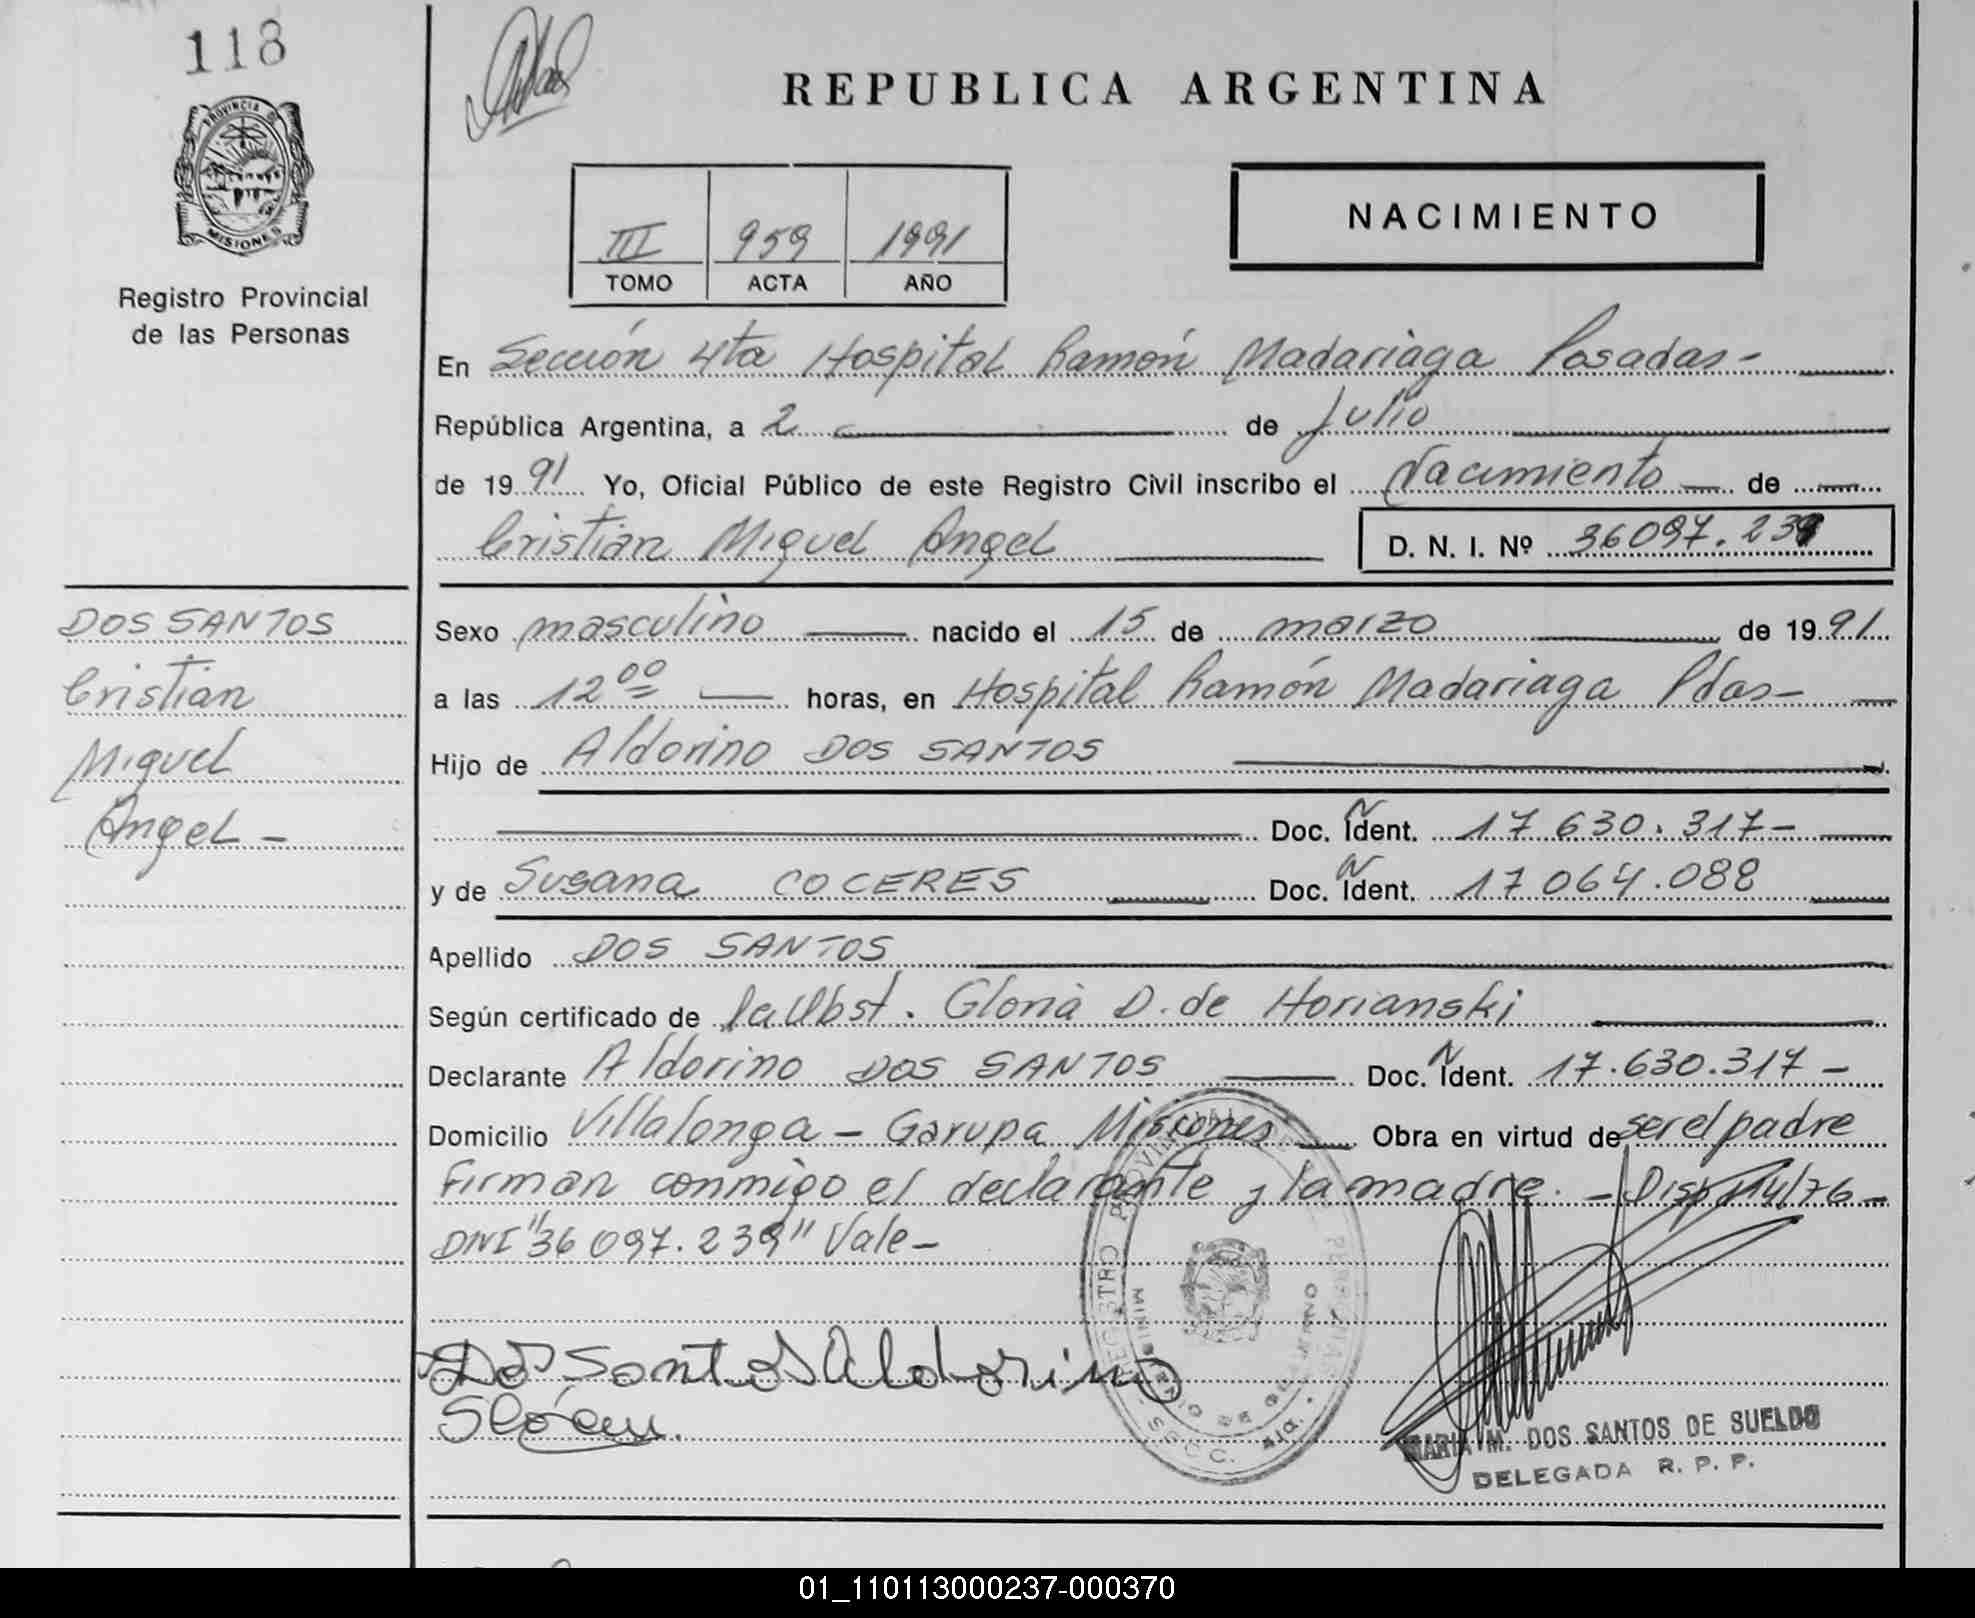 118
REPUBLICA ARGENTINA
PROVINCIA DE
MISIONES
Registro Provincial
de las Personas
III 959 1991
TOMO ACTA AÑO
NACIMIENTO
En Sección 4ta Hospital Ramón Madariaga Posadas-
República Argentina, a 2 de Julio
de 1991 Yo, Oficial Público de este Registro Civil inscribo el Nacimiento de
Cristian Miguel Angel D. N. I. Nº 36097.239
DOS SANTOS
Cristian
Miguel
Angel -
Sexo masculino nacido el 15 de marzo de 1991
a las 12 00 horas, en Hospital Ramón Madariaga Pdas-
Hijo de Aldorino DOS SANTOS
Doc. Ñ Ident. 17 630.317-
y de Susana COCERES Doc. N Ident. 17 064.088
Apellido DOS SANTOS
Según certificado de la Obst. Gloria D. de Horianski
Declarante Aldorino DOS SANTOS Doc. N Ident. 17.630.317-
Domicilio Villalonga - Garupa Misiones Obra en virtud de ser el padre
Firman conmigo el declarante y la madre. - Disp.
DNI "36 097.239" Vale-
REGISTRO PROVINCIAL DE LAS PERSONAS
MINISTERIO DE GOBIERNO
Dos Santos Aldorino
MARIA M. DOS SANTOS DE SUELDO
DELEGADA R. P. P.
01_110113000237-000370